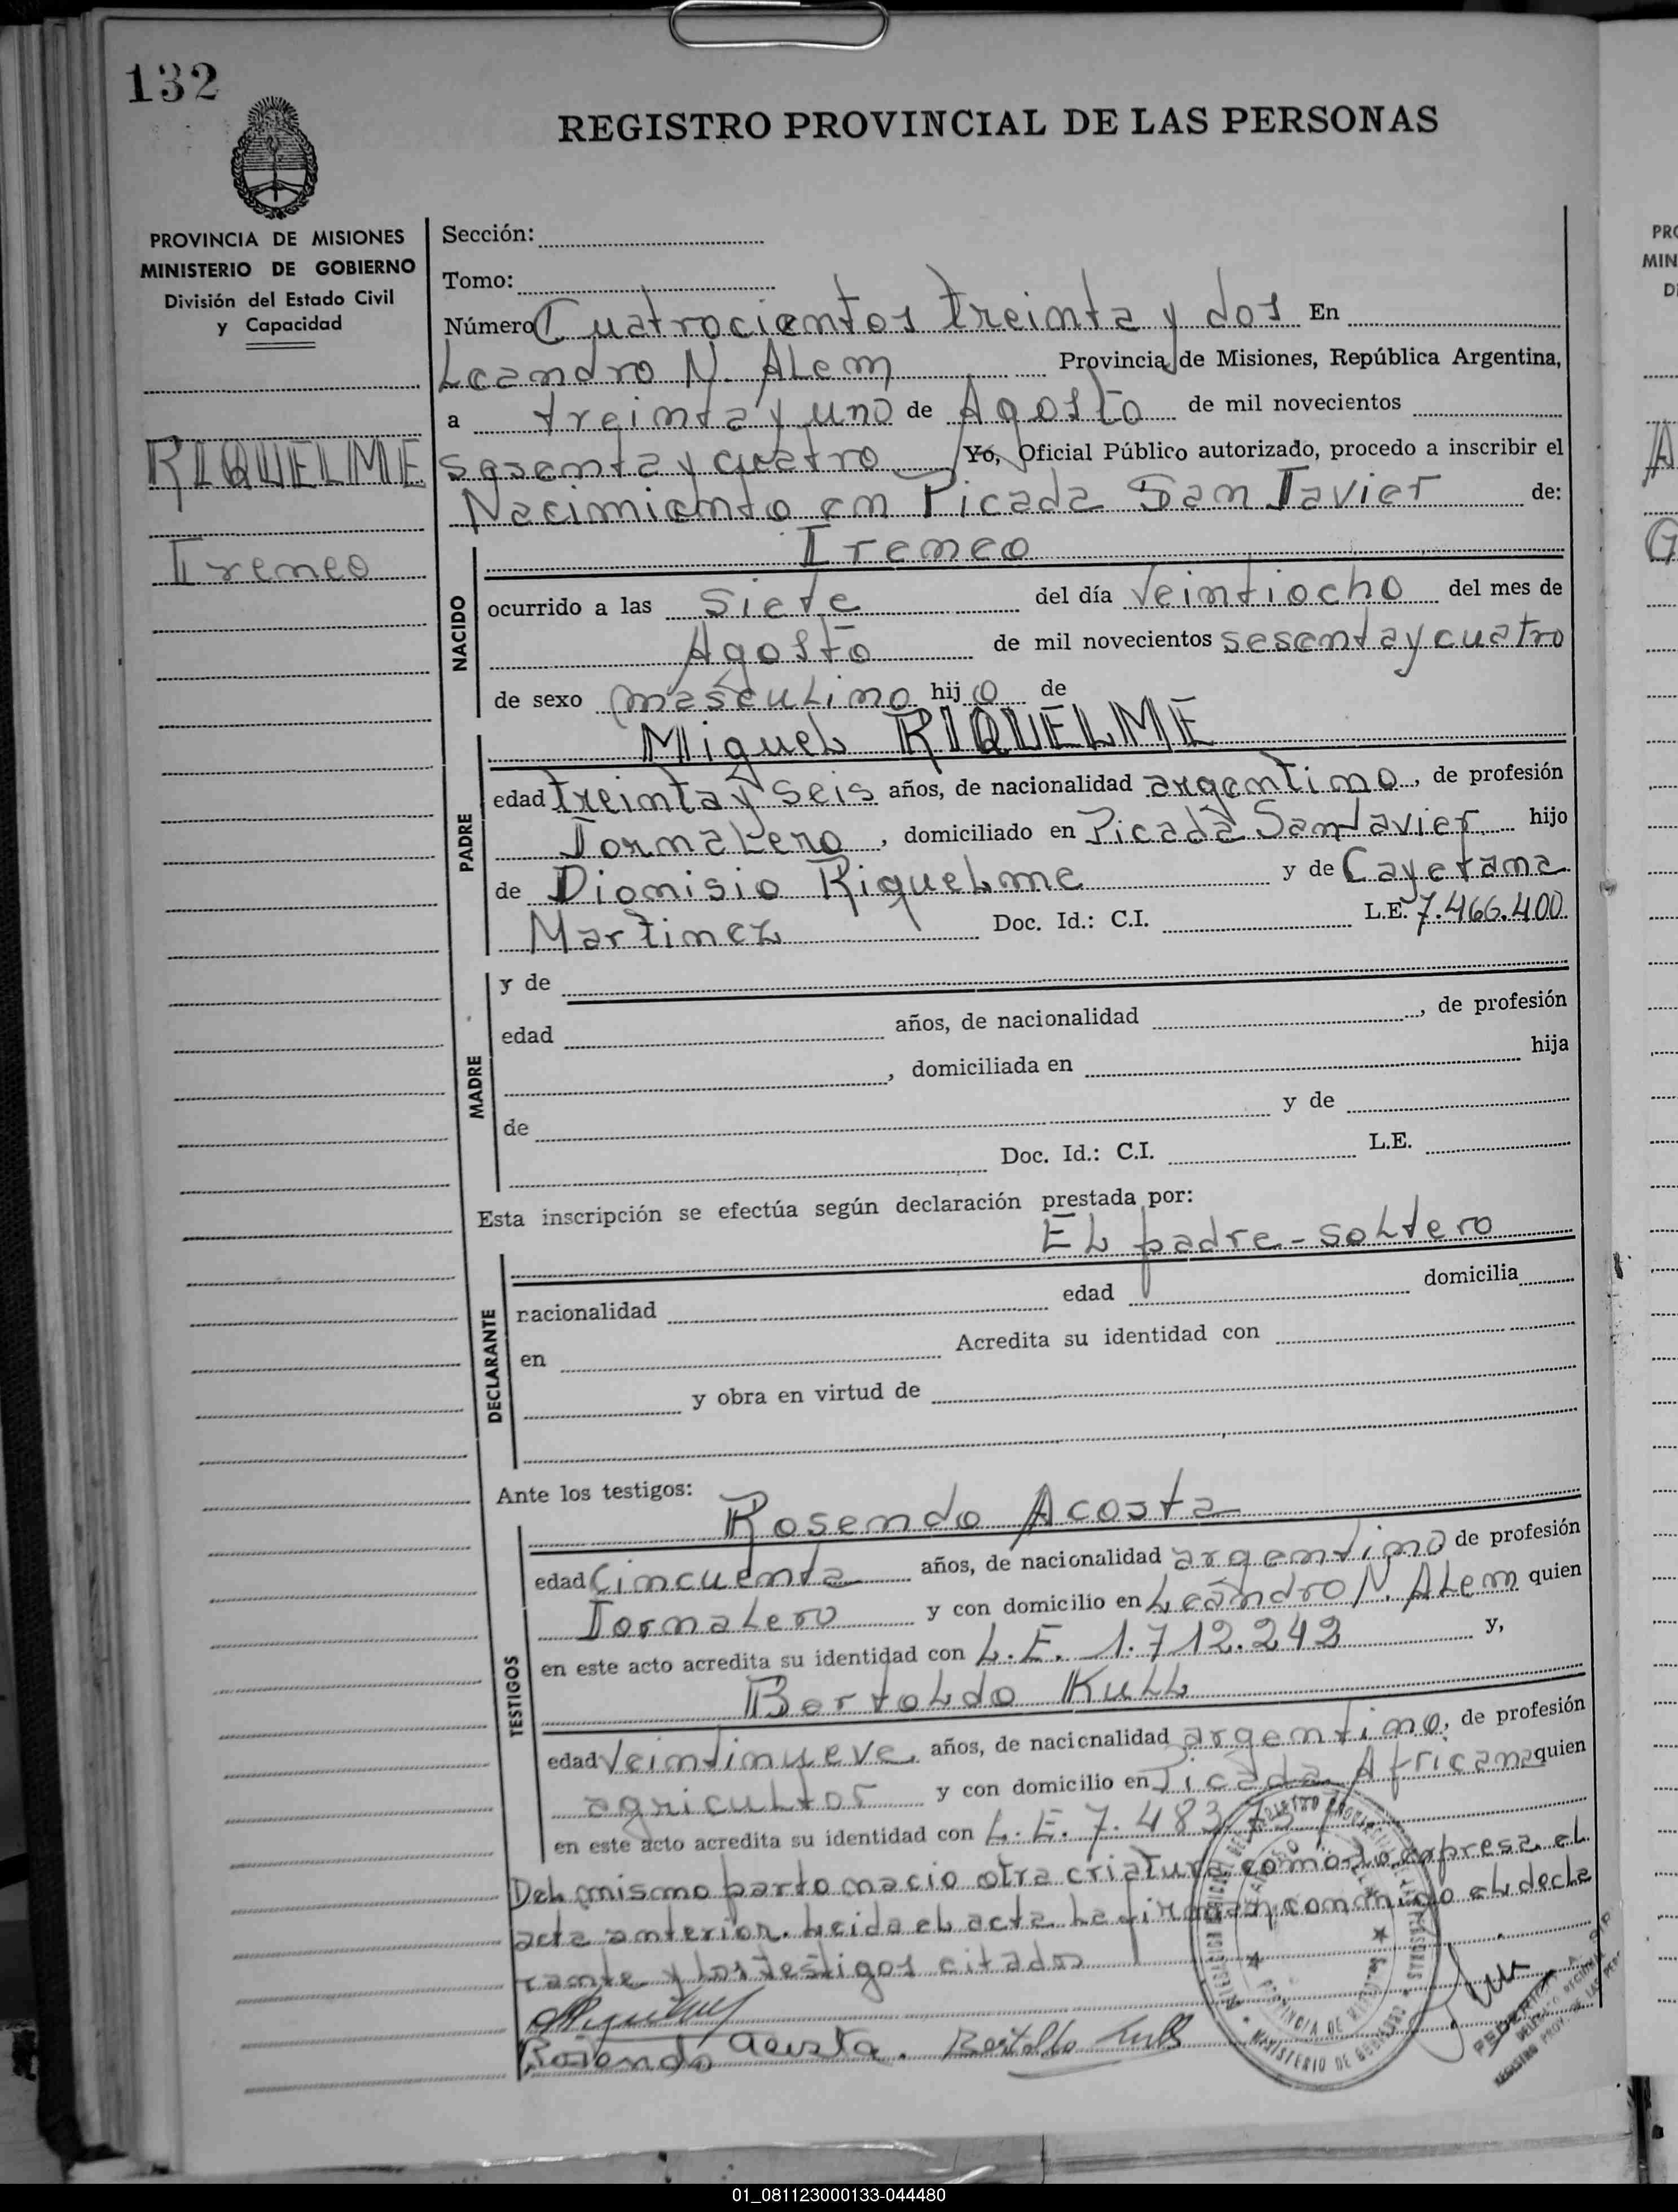 132
REGISTRO PROVINCIAL DE LAS PERSONAS
PROVINCIA DE MISIONES
MINISTERIO DE GOBIERNO
División del Estado Civil
y Capacidad
RIQUELME
Ireneo
Sección:
Tomo:
Número Cuatrocientos treinta y dos En
Leandro N. ALem Provincia de Misiones, República Argentina,
a treinta y uno de Agosto de mil novecientos
sesenta y cuatro Yo, Oficial Público autorizado, procedo a inscribir el
Nacimiento en Picada San Javier de:
Ireneo
NACIDO
ocurrido a las siete del día Veintiocho del mes de
Agosto de mil novecientos sesenta y cuatro
de sexo masculino hijo de
Miguel RIQUELME
PADRE
edad treinta y seis años, de nacionalidad argentino, de profesión
Jornalero, domiciliado en Picada San Javier hijo
de Dionisio Riquelme y de Cayetana
Martinez Doc. Id.: C.I. L.E. 7.466.400
MADRE
y de
edad años, de nacionalidad , de profesión
, domiciliada en hija
de y de
Doc. Id.: C.I. L.E.
Esta inscripción se efectúa según declaración prestada por:
EL padre - soltero
DECLARANTE
nacionalidad edad domicilia
en Acredita su identidad con
y obra en virtud de
Ante los testigos:
Rosendo Acosta
TESTIGOS
edad Cincuenta años, de nacionalidad argentino de profesión
Jornalero y con domicilio en Leandro N. ALem quien
en este acto acredita su identidad con L.E. 1.712.243 y,
Bertoldo Kull
edad Veintinueve años, de nacionalidad argentino, de profesión
agricultor y con domicilio en Picada Africana quien
en este acto acredita su identidad con L.E. 7.483
Del mismo parto nacio otra criatura como lo expresa el
acta anterior. Leida el acta La firman conmigo el decla
rante y los testigos citados
Rosendo Acosta. Bertoldo Kull
PROVINCIA DE MISIONES
MINISTERIO DE GOBIERNO
01_081123000133-044480